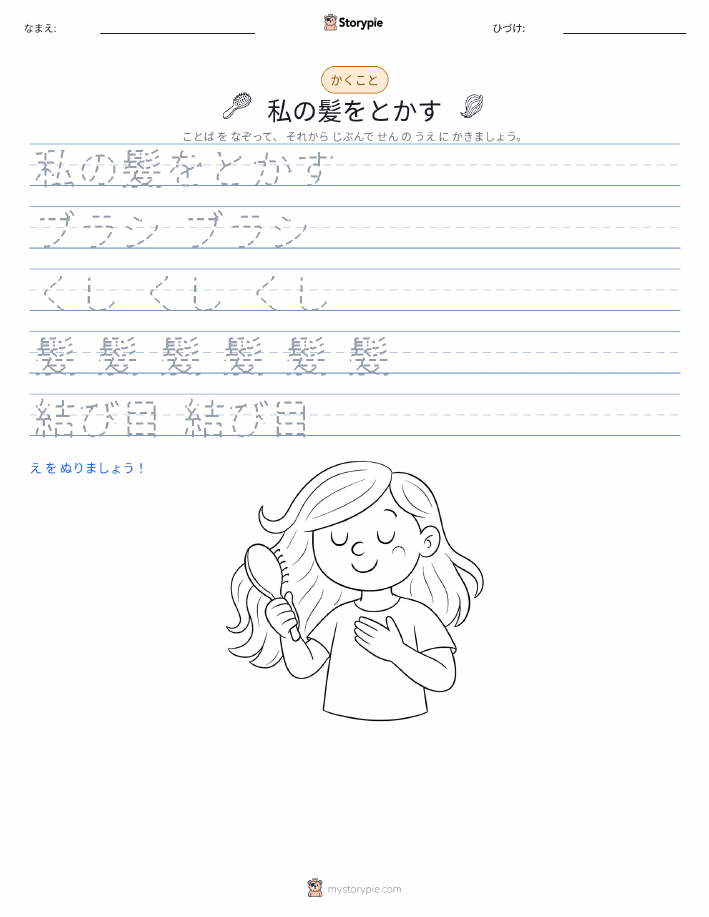 なまえ:
Storypie
ひづけ:
かくこと
私の髪をとかす
ことば を なぞって、 それから じぶんで せん の うえ に かきましょう。
私の髪をとかす
ブラシ ブラシ
くし くし くし
髪 髪 髪 髪 髪 髪
結び目 結び目
え を ぬりましょう！
mystorypie.com